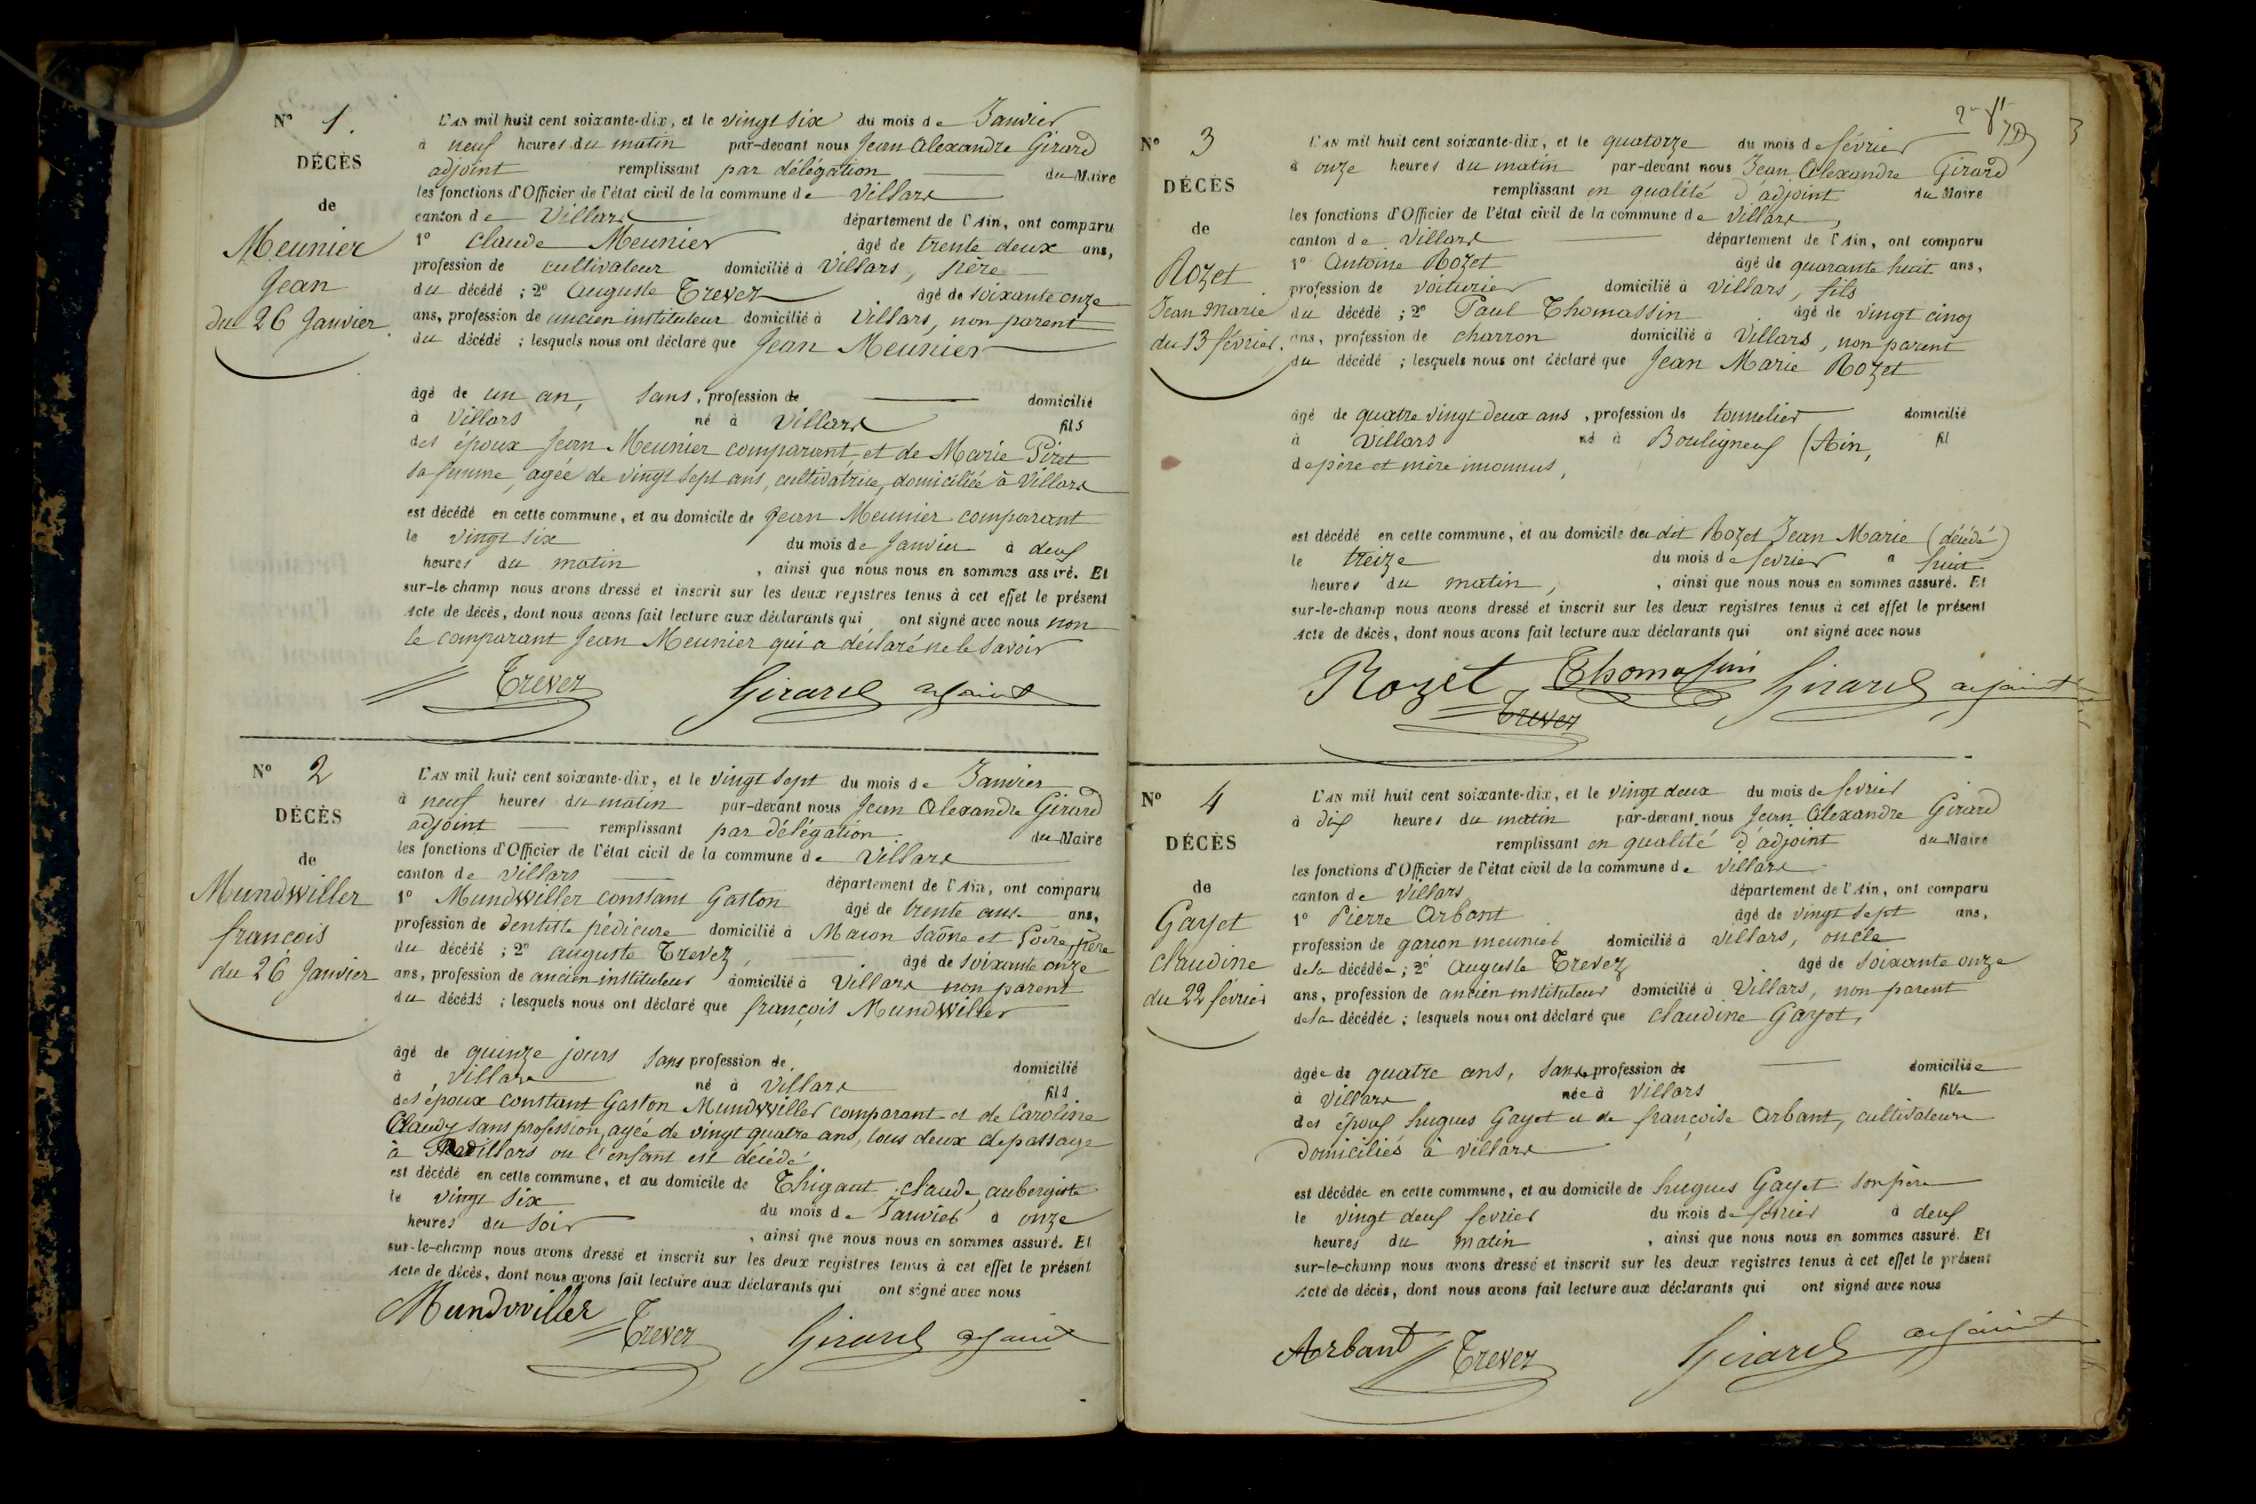 N° 1.
DÉCÈS
de
Meunier
Jean
du 26 Janvier
L'AN mil huit cent soixante-dix, et le vingt six du mois de Janvier
à neuf heures du matin par-devant nous Jean Alexandre Girard
adjoint remplissant par délégation du Maire
les fonctions d'Officier de l'état civil de la commune de Villars
canton de Villars département de l'Ain, ont comparu
1° Claude Meunier âgé de trente deux ans,
profession de cultivateur domicilié à Villars, père
du décédé ; 2° Auguste Trevez âgé de soixante onze
ans, profession de ancien instituteur domicilié à Villars, non parent
du décédé ; lesquels nous ont déclaré que Jean Meunier
âgé de un an, sans, profession de domicilié
à Villars né à Villars fils
des époux Jean Meunier comparant et de Marie Pizet
sa femme, agée de vingt sept ans, cultivatrice, domiciliée à Villars
est décédé en cette commune, et au domicile de Jean Meunier comparant
le vingt six du mois de Janvier à deux
heures du matin, ainsi que nous nous en sommes assuré. Et
sur-le-champ nous avons dressé et inscrit sur les deux registres tenus à cet effet le présent
Acte de décès, dont nous avons fait lecture aux déclarants qui ont signé avec nous non
le comparant Jean Meunier qui a déclaré ne le savoir
Trevez Girard adjoint
N° 2
DÉCÈS
de
Mundwiller
françois
du 26 Janvier
L'AN mil huit cent soixante-dix, et le vingt sept du mois de Janvier
à neuf heures du matin par-devant nous Jean Alexandre Girard
adjoint remplissant par délégation du Maire
les fonctions d'Officier de l'état civil de la commune de Villars
canton de Villars département de l'Ain, ont comparu
1° Mundwiller constant Gaston âgé de trente ans ans,
profession de dentiste pédicure domicilié à Macon Saône et Loire, père
du décédé ; 2° auguste Trevez, âgé de soixante onze
ans, profession de ancien instituteur domicilié à Villars non parent
du décédé ; lesquels nous ont déclaré que françois Mundwiller
âgé de quinze jours sans profession de domicilié
à Villars né à Villars fils
des époux constant Gaston Mundwiller comparant et de Caroline
Claudy sans profession, agée de vingt quatre ans, tous deux de passage
à Villars ou l'enfant est décédé
est décédé en cette commune, et au domicile de Thigaut claude, aubergiste
le vingt six du mois de Janvier à onze
heures du soir, ainsi que nous nous en sommes assuré. Et
sur-le-champ nous avons dressé et inscrit sur les deux registres tenus à cet effet le présent
Acte de décès, dont nous avons fait lecture aux déclarants qui ont signé avec nous
Mundwiller Trevez Girard adjoint
3
N° 3
DÉCÈS
de
Rozet
Jean Marie
du 13 février.
L'AN mil huit cent soixante-dix, et le quatorze du mois de février
à onze heures du matin par-devant nous Jean Alexandre Girard
remplissant en qualité d'adjoint du Maire
les fonctions d'Officier de l'état civil de la commune de Villars,
canton de Villars département de l'Ain, ont comparu
1° Antoine Rozet âgé de quarante huit ans,
profession de voiturier domicilié à Villars, fils
du décédé ; 2° Paul Thomassin âgé de vingt cinq
ans, profession de charron domicilié à Villars, non parent
du décédé ; lesquels nous ont déclaré que Jean Marie Rozet
âgé de quatre vingt deux ans, profession de tonnelier domicilié
à Villars né à Bouligneux (Ain, fil
de père et mère inconnus,
est décédé en cette commune, et au domicile du dit Rozet Jean Marie (décédé)
le treize du mois de fevrier a huit
heures du matin, , ainsi que nous nous en sommes assuré. Et
sur-le-champ nous avons dressé et inscrit sur les deux registres tenus à cet effet le présent
Acte de décès, dont nous avons fait lecture aux déclarants qui ont signé avec nous
Rozet Thomassin Girard adjoint
Trevez
N° 4
DÉCÈS
de
Gayet
claudine
du 22 février
L'AN mil huit cent soixante-dix, et le vingt deux du mois de fevrier
à dix heures du matin par-devant nous Jean Alexandre Girard
remplissant en qualité d'adjoint du Maire
les fonctions d'Officier de l'état civil de la commune de Villars
canton de Villars département de l'Ain, ont comparu
1° Pierre Arbant âgé de vingt sept ans,
profession de garcon meunier domicilié à Villars, oncle
de la décédée ; 2° Auguste Trevez âgé de soixante onze
ans, profession de ancien instituteur domicilié à Villars, non parent
de la décédée ; lesquels nous ont déclaré que Claudine Gayet,
âgée de quatre ans, sans profession de domiciliée
à Villars née à Villars fille
des époux hugues Gayet et de françoise Arbant, cultivateurs
domiciliés à Villars
est décédée en cette commune, et au domicile de hugues Gayet son père
le vingt deux fevrier du mois de fevrier à deux
heures du matin, ainsi que nous nous en sommes assuré. Et
sur-le-champ nous avons dressé et inscrit sur les deux registres tenus à cet effet le présent
Acte de décès, dont nous avons fait lecture aux déclarants qui ont signé avec nous
Arbant Trevez Girard adjoint